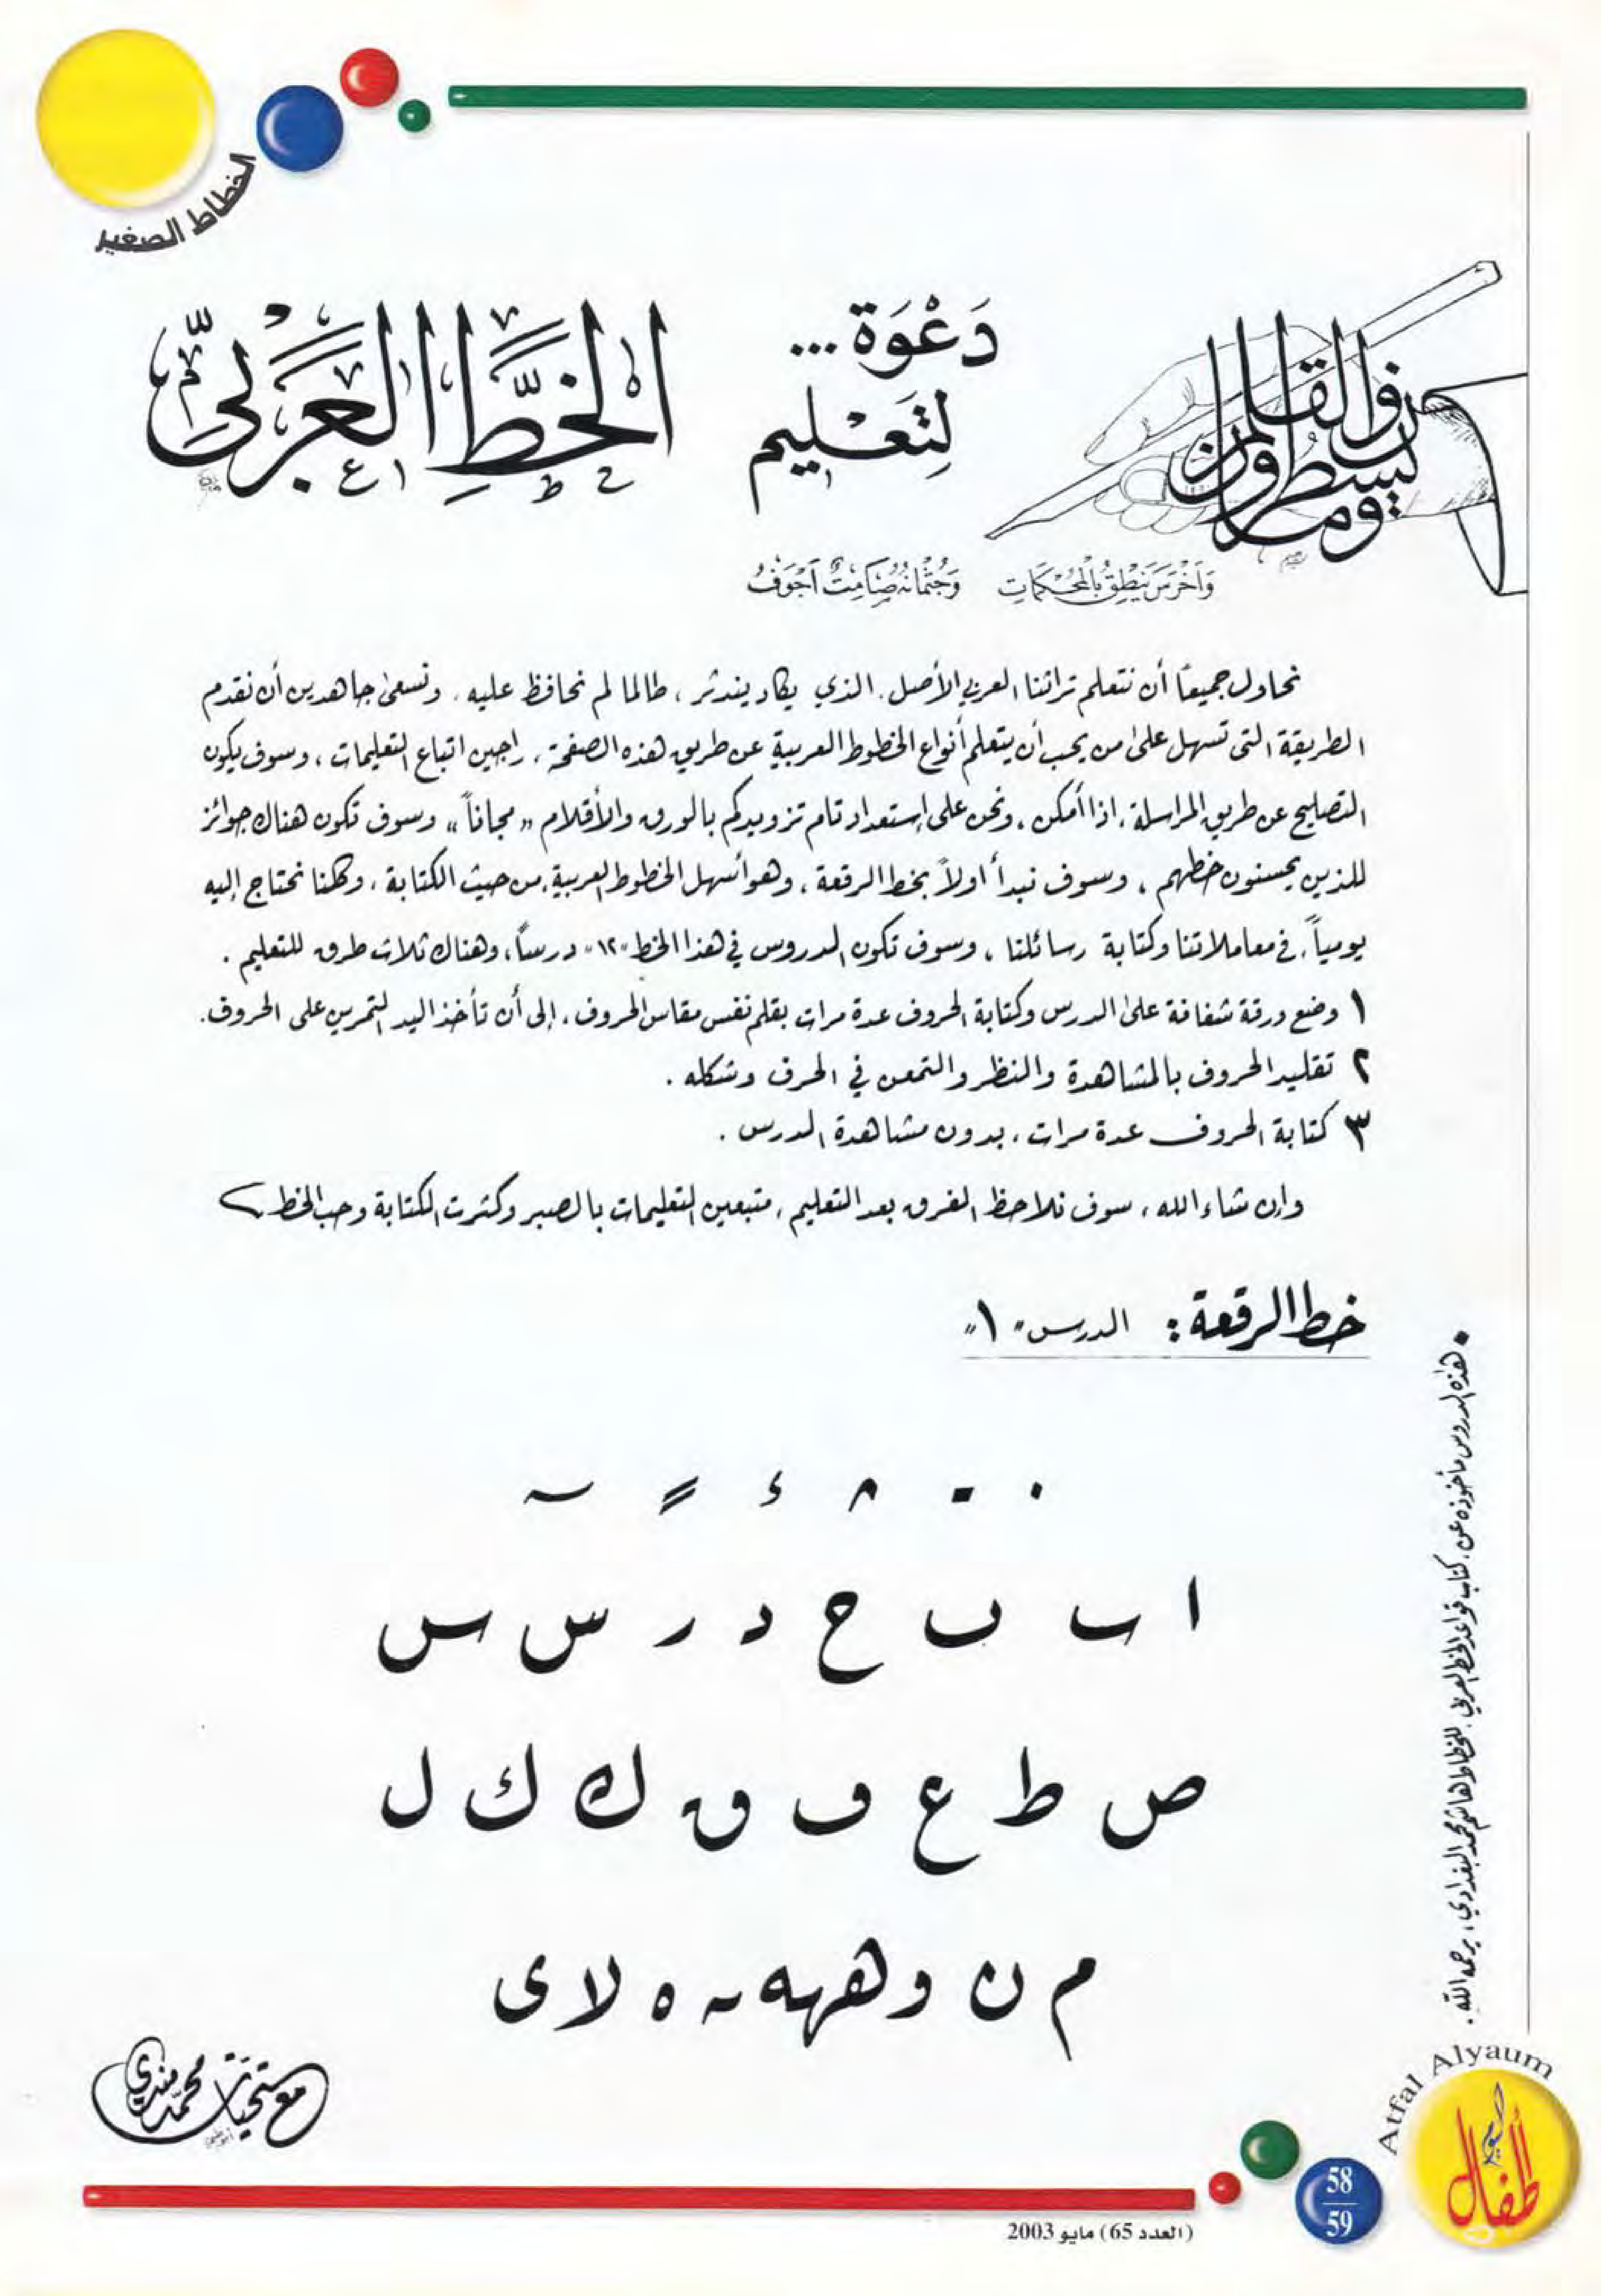 الخطاط الصغير
دَعْوَة...
لتَعْليم
الخَطِّ العَرَبيِّ
ن والقلم وما يسطرون
وَأَخْرَسَ يَنْطِقُ بِالْمُحْكَمَاتِ وَجُثْمَانُهُ صَامِتٌ أَجْوَفُ
نحاول جميعاً أن نتعلم تراثنا العربي الأصل. الذي يكاد يندثر، طالما لم نحافظ عليه. ونسعى جاهدين أن نقدم
الطريقة التي تسهل على من يحب أن يتعلم أنواع الخطوط العربية عن طريق هذه الصفحة، راجين اتباع التعليمات، وسوف يكون
التصليح عن طريق المراسلة، إذا أمكن، ونحن على إستعداد تام تزويدكم بالورق والأقلام «مجاناً» وسوف تكون هناك جوائز
للذين يحسنون خطهم، وسوف نبدأ أولاً بخط الرقعة، وهو أسهل الخطوط العربية، من حيث الكتابة، وكلنا نحتاج إليه
يومياً، في معاملاتنا وكتابة رسائلنا، وسوف تكون الدروس في هذا الخط "١٢" درساً، وهناك ثلاث طرق للتعليم.
١ وضع ورقة شفافة على الدرس وكتابة الحروف عدة مرات بقلم نفس مقاس الحروف، إلى أن تأخذ اليد التمرين على الحروف.
٢ تقليد الحروف بالمشاهدة والنظر والتمعن في الحرف وشكله.
٣ كتابة الحروف عدة مرات، بدون مشاهدة الدرس.
وإن شاء الله، سوف نلاحظ الفرق بعد التعليم، متبعين التعليمات بالصبر وكثرت الكتابة وحب الخط
خط الرقعة: الدرس "١"
ا ب ب ح د ر س س
ص ط ع ف ق ك ك ل
م ن و ههه ه لا ى
• هذه الدروس مأخوذه عن، كتاب قواعد الخط العربي، للخطاط هاشم محمد البغدادي، يرحمه الله.
مع تحيات محمد مندي
Atfal Alyaum
أطفال اليوم
58
59
(العدد 65) مايو 2003